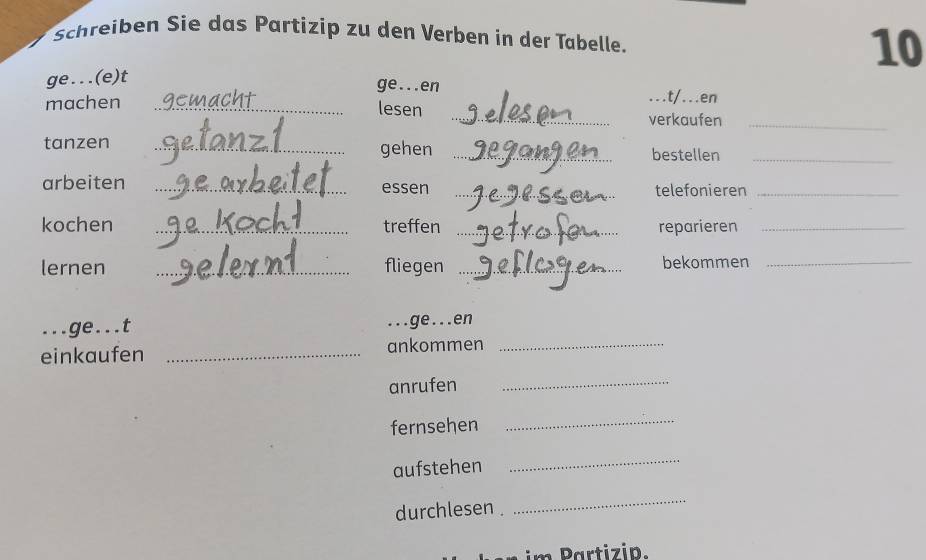 Schreiben Sie das Partizip zu den Verben in der Tabelle.
10
ge...(e)t
machen gemacht
tanzen getanzt
arbeiten gearbeitet
kochen gekocht
lernen gelernt
ge...en
lesen gelesen
gehen gegangen
essen gegessen
treffen getrofen
fliegen geflogen
...t/...en
verkaufen
bestellen
telefonieren
reparieren
bekommen
...ge...t
einkaufen
...ge...en
ankommen
anrufen
fernsehen
aufstehen
durchlesen
im Partizip.